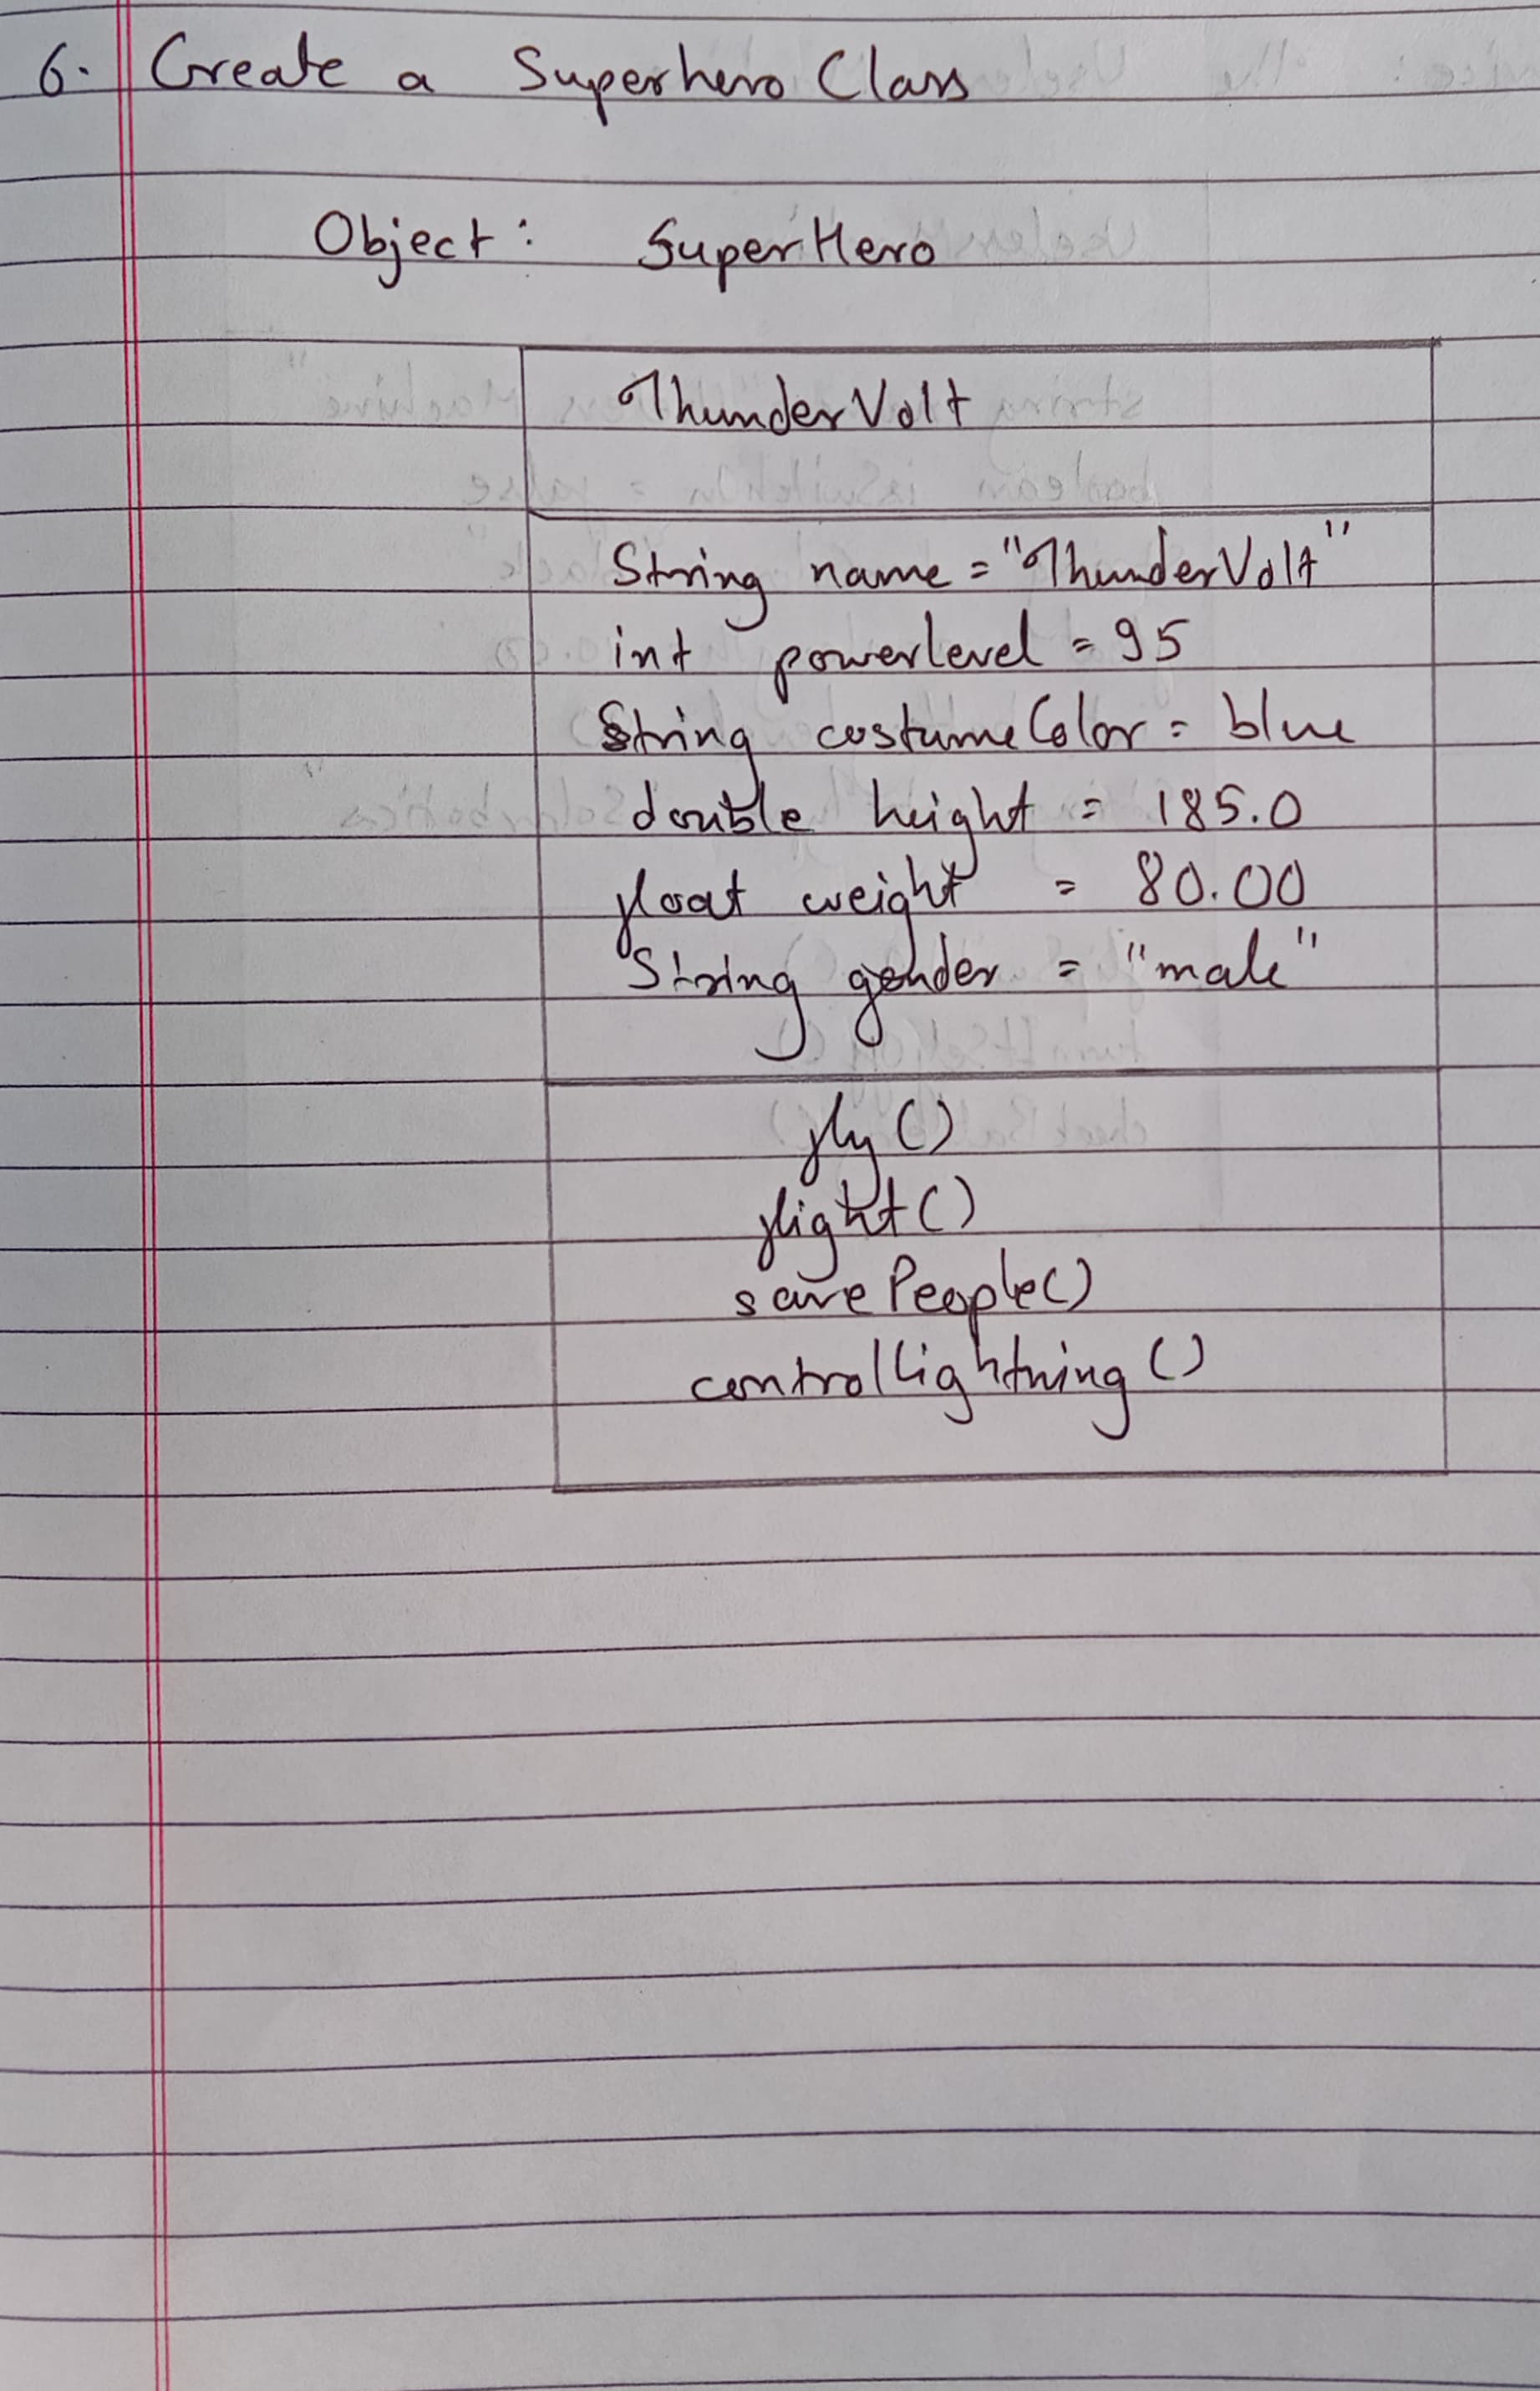 6. Create a Superhero Class
Object: SuperHero
ThunderVolt
String name = "ThunderVolt"
int powerlevel = 95
String costumeColor = blue
double height = 185.0
float weight = 80.00
String gender = "male"
fly()
flight()
savePeople()
controlLightning()